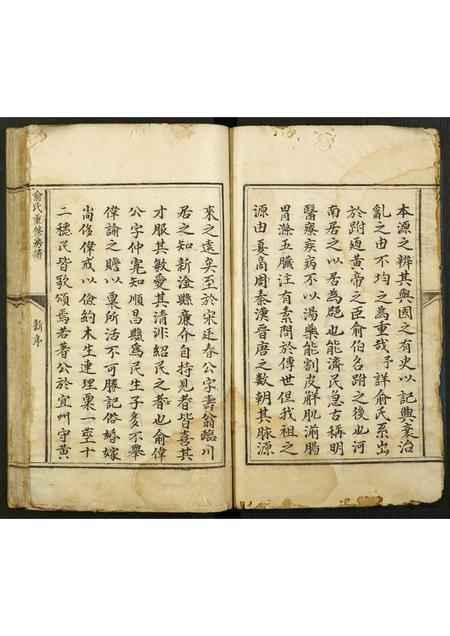 本源之辨其與國之有史以記興衰治
亂之由不均之為重哉予詳俞氏系出
於跗迺黃帝之臣俞伯名跗之後也河
南居之以居為邑也能濟民急古稱明
醫療疾病不以湯藥能割皮解肌湔腸
胃滌五臟注有素問於傳世但我祖之
源由夏商周秦漢晉唐之數朝其脉源
來之遠矣至於宋廷春公字壽翁臨川
居之知新淦縣廉介自持見者皆喜其
才服其敏愛其清詠紹民之者也俞偉
公字仲寬知順昌縣為民生子多不舉
偉諭之賸以粟所活不可勝記俗婚嫁
尚侈偉戒以儉約木生連理粟一莖十
二穗民皆歌頌焉若著公於宜州守黃
俞氏重修房譜
新序